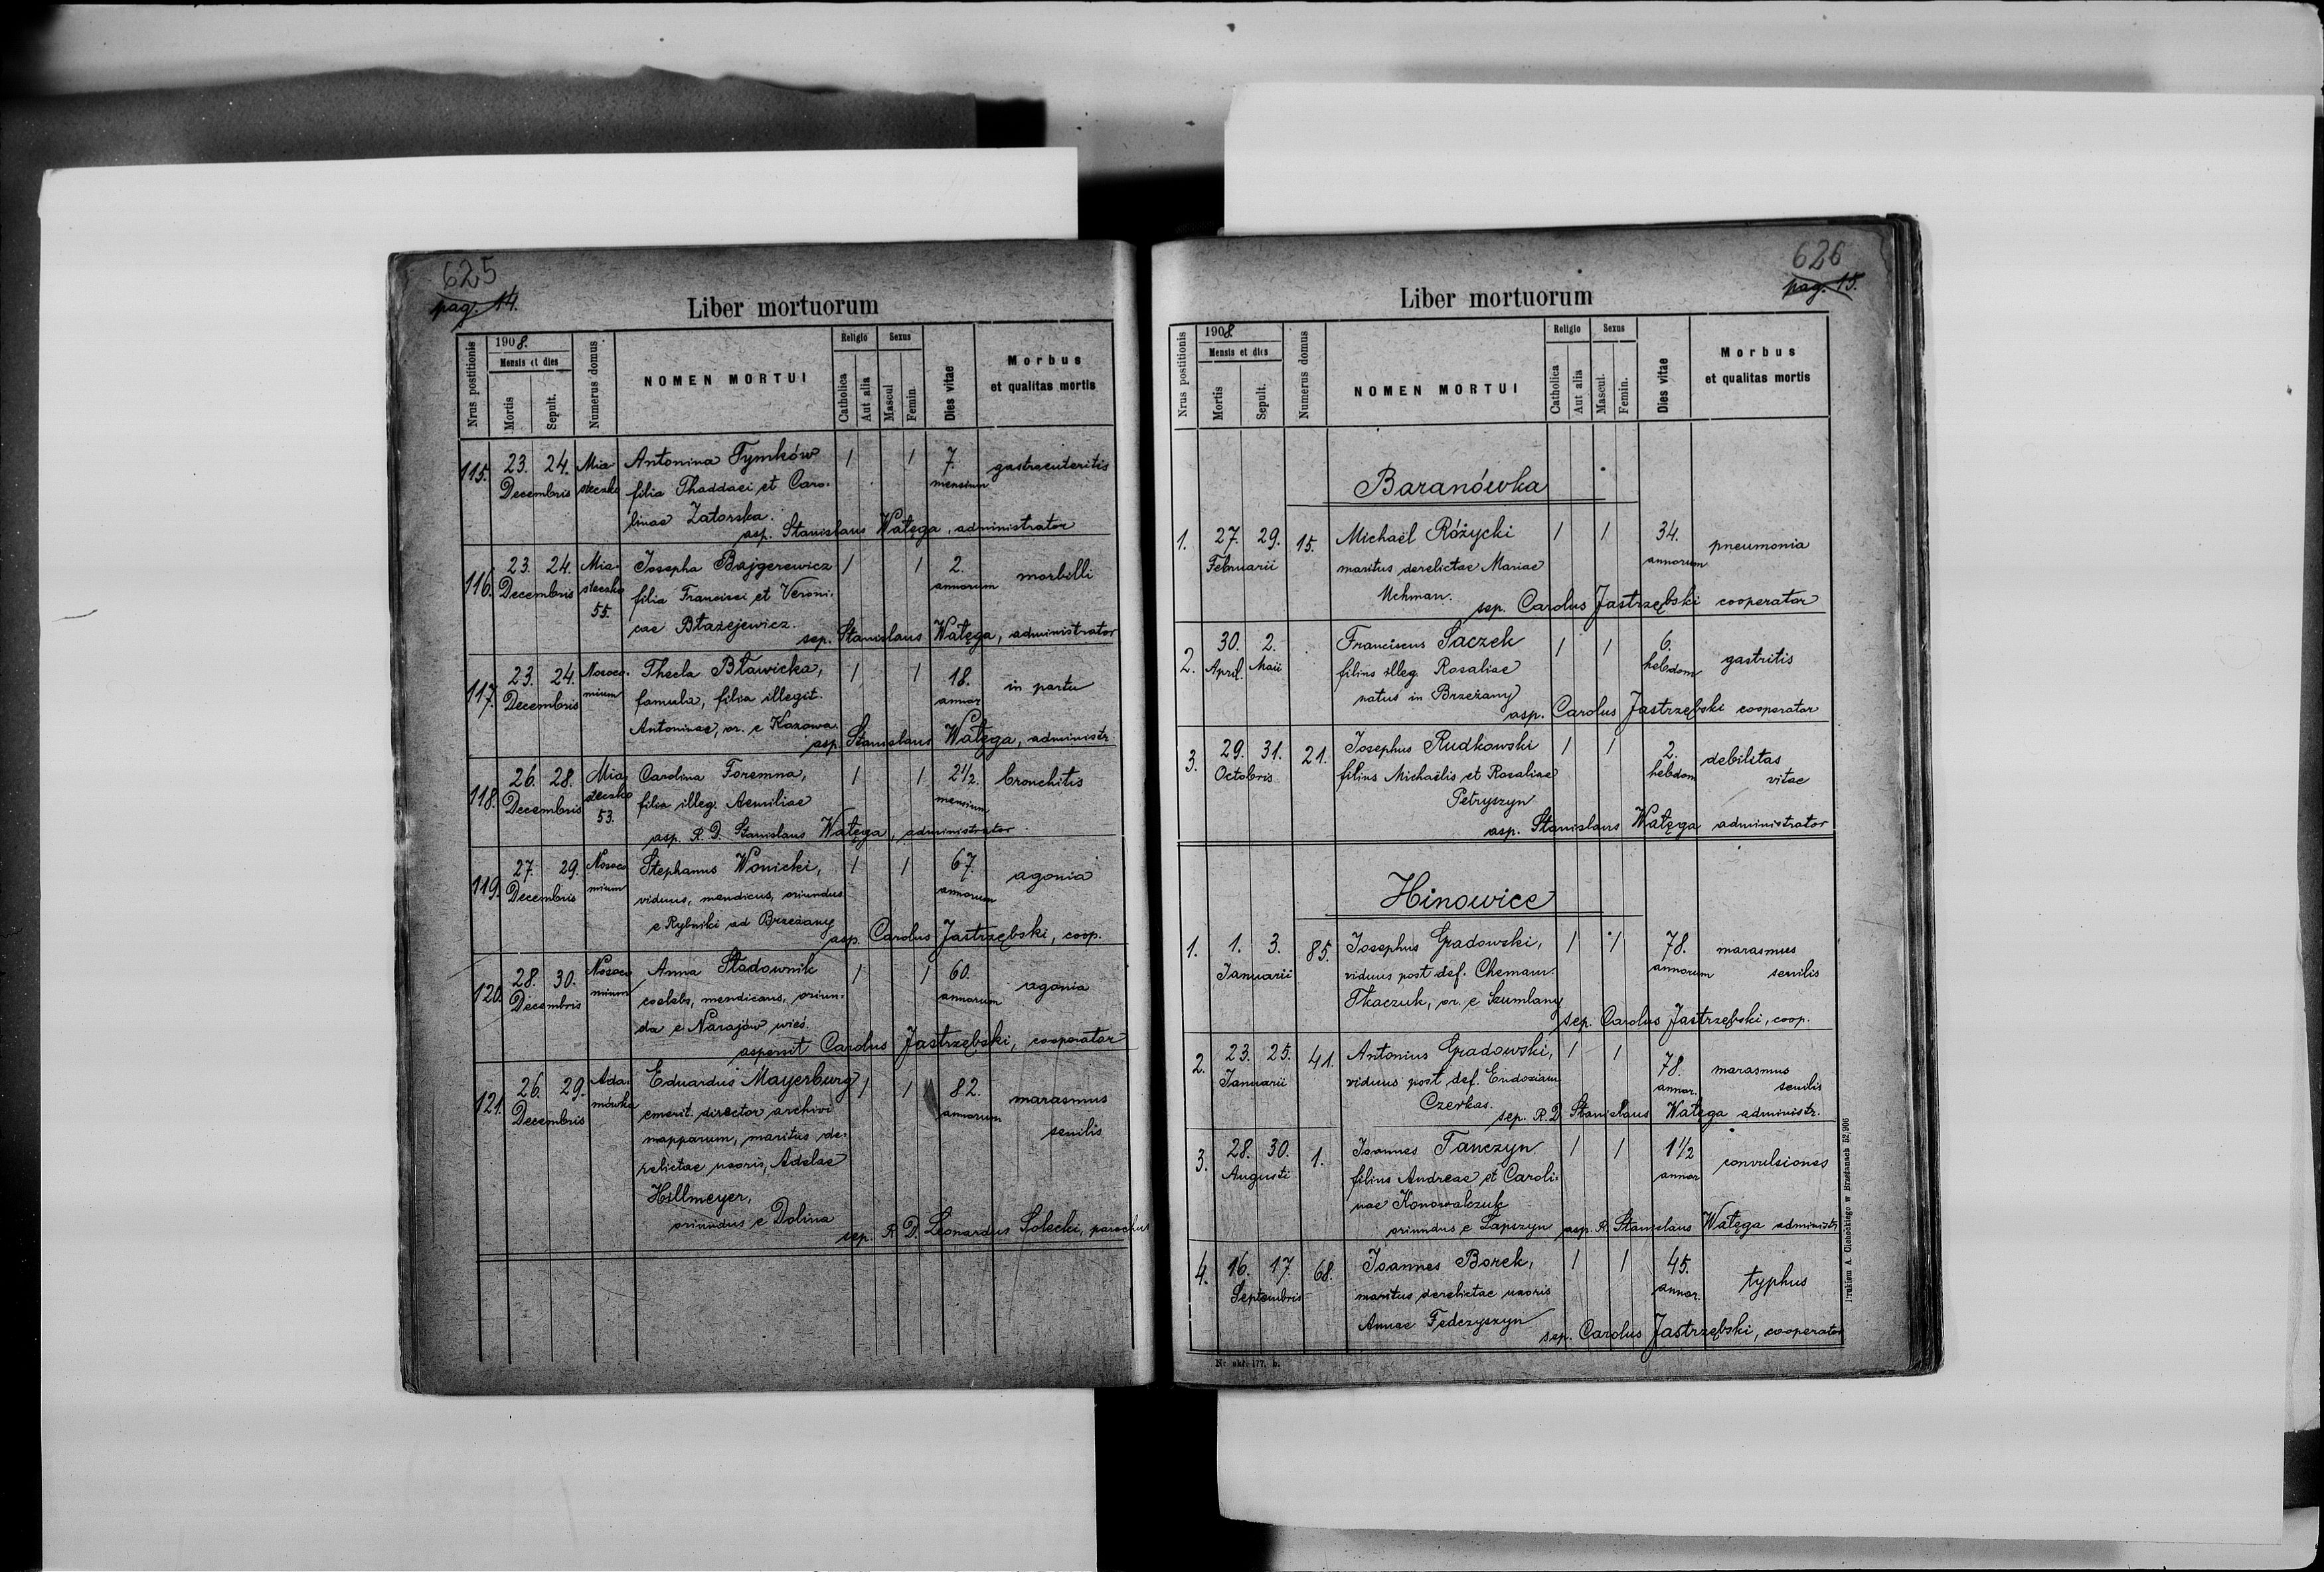 625
pag. 14.
Liber mortuorum
Nrus postitionis
1908.
Mensis et dies
Mortis
Sepult.
Numerus domus
NOMEN MORTUI
Religio
Catholica
Aut alia
Sexus
Mascul
Femin.
Dies vitae
Morbus
et qualitas mortis
115. 23. 24. Mia Antonina Tymków / / 7. gastroenteritis
Decembris steczko filia Thaddaei et Caro- mensium
linae Zatorska.
asp. Stanislaus Watęga, administrator
116. 23. 24. Mia- Josepha Bajgerewicz / / 2. morbilli
Decembris steczko filia Francisci et Veroni- annorum
55. cae Błażejewicz.
sep. Stanislaus Watęga, administrator
117. 23. 24. Nosoco- Thecla Bławicka, / / 18. in partu
Decembris mium famula, filia illegit. annor
Antoninae, or. e Kozowa.
asp. Stanislaus Watęga, administr.
118. 26. 28. Mia Carolina Foremna, / / 2 1/2. bronchitis
Decembris steczko filia illeg. Aemiliae mensium
53.
asp. R. D. Stanislaus Watęga, administrator
119. 27. 29. Nosoco Stephanus Wonicki, / / 67. agonia
Decembris mium viduus, mendicus, oriundus annorum
e Rybniki ad Brzeżany
asp. Carolus Jastrzębski, coop.
120. 28. 30. Nosoco Anna Stadownik / / 60. agonia
Decembris mium coelebs, mendicans, oriun- annorum
da e Narajów wieś.
aspersit Carolus Jastrzębski, cooperator
121. 26. 29. Ada- Eduardus Mayerburg / / 82. marasmus
Decembris mówka emerit. director archivi annorum senilis
mapparum, maritus de-
relictae uxoris, Adelae
Hillmeyer,
oriundus e Dolina
sep. R. D. Leonardus Solecki, parochus
626
pag. 15.
Liber mortuorum
Nrus postitionis
1908.
Mensis et dies
Mortis
Sepult.
Numerus domus
NOMEN MORTUI
Religio
Catholica
Aut alia
Sexus
Mascul.
Femin.
Dies vitae
Morbus
et qualitas mortis
Baranówka
1. 27. 29. 15. Michaël Różycki / / 34. pneumonia
Februarii maritus derelictae Mariae annorum
Uchman.
sep. Carolus Jastrzębski cooperator
2. 30. 2. Franciscus Saczek / / 6. gastritis
April. Maii filius illeg. Rosaliae hebdom
natus in Brzeżany
asp. Carolus Jastrzębski cooperator
3. 29. 31. 21. Josephus Rudkowski / / 2. debilitas
Octobris filius Michaëlis et Rosaliae hebdom vitae
Petryszyn
asp. Stanislaus Watęga administrator
Hinowice
1. 1. 3. 85. Josephus Gradowski, / / 78. marasmus
Januarii viduus post def. Chemam. annorum senilis
Tkaczuk, or. e Szumlany
sep. Carolus Jastrzębski, coop.
2. 23. 25. 41. Antonius Gradowski, / / 78. marasmus
Januarii viduus post def. Eudoxiam annor. senilis
Czerkas.
sep. R. D. Stanislaus Watęga administr.
3. 28. 30. 1. Joannes Tanczyn / / 1 1/2 convulsiones
Augusti filius Andreae et Caroli- annor
nae Konowalczuk
oriundus e Łapszyn asp. R. Stanislaus Watęga administr
4. 16. 17. 68. Joannes Borek, / / 45. typhus
Septembris maritus derelictae uxoris annor.
Annae Fedczyszyn
sep. Carolus Jastrzębski, cooperator
Nr akc. 177. b.
Drukiem A. Cichockiego w Brzeżanach 52,906